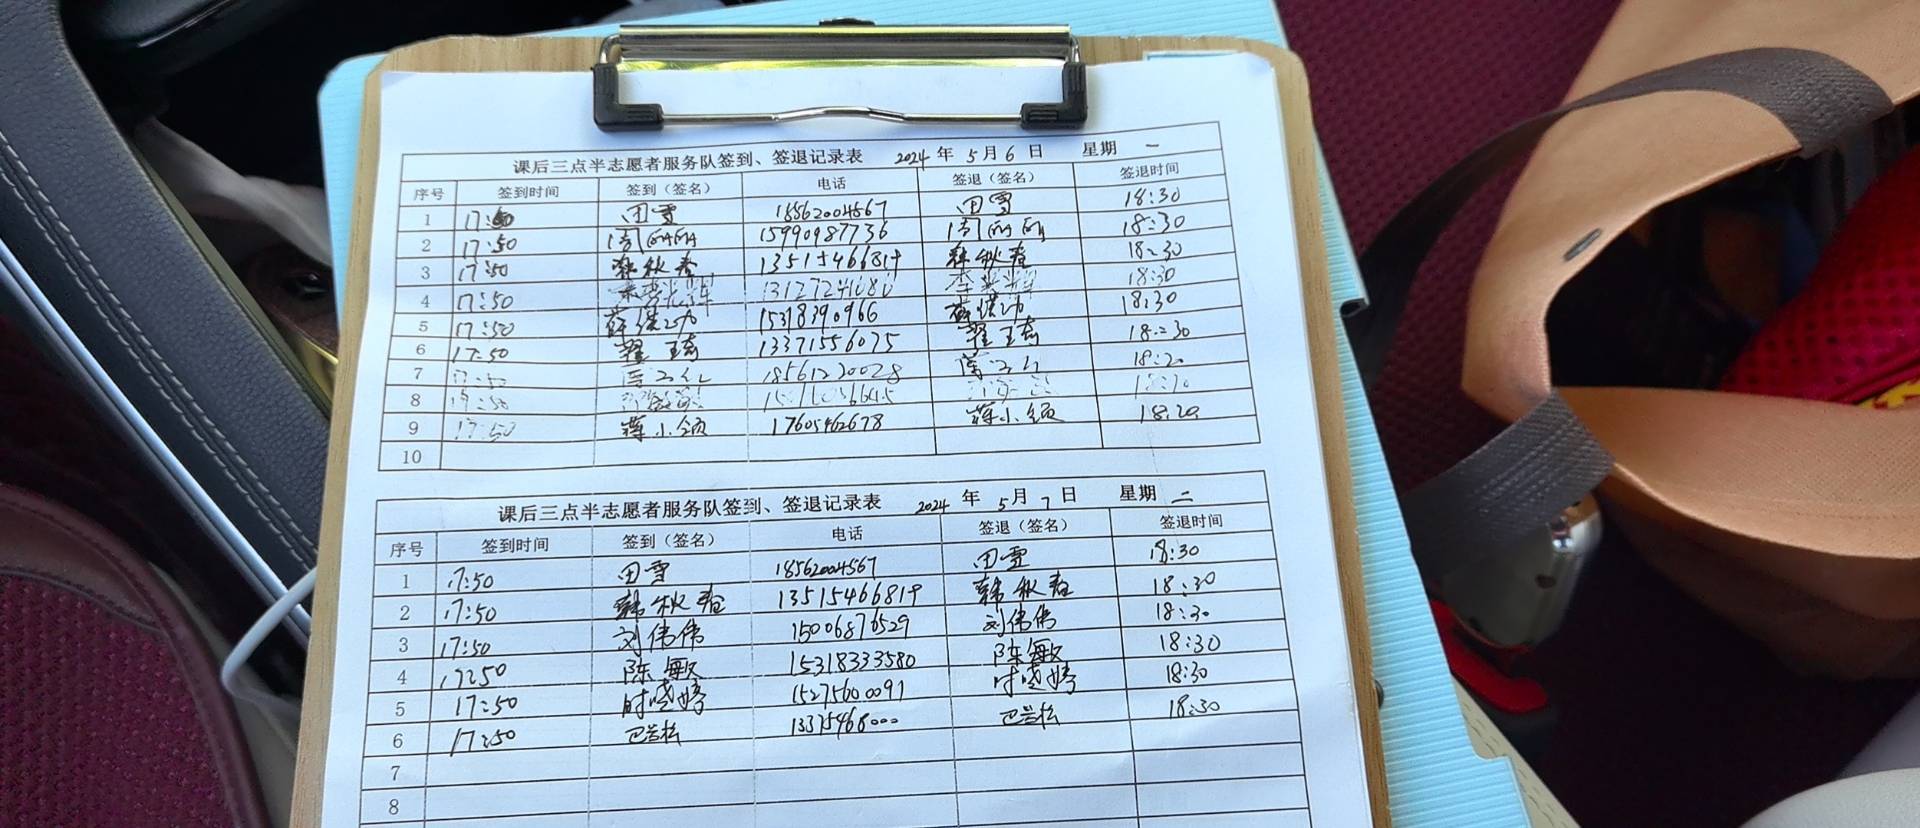 课后三点半志愿者服务队签到、签退记录表 2024 年 5 月 6 日 星期 一
序号 签到时间 签到（签名） 电话 签退（签名） 签退时间
1 17:50 田雪 18562004567 田雪 18:30
2 17:50 周丽丽 15990987736 周丽丽 18:30
3 17:50 韩秋春 13515466819 韩秋春 18:30
4 17:50 18:30
5 17:50 15318390966 18:30
6 17:50 翟玉奇 13371556075 翟玉奇 18:30
7 17:50 18561220028 18:20
8 17:50
9 17:50 蒋小颂 17605462678 蒋小颂 18:20
10
课后三点半志愿者服务队签到、签退记录表 2024 年 5 月 7 日 星期 二
序号 签到时间 签到（签名） 电话 签退（签名） 签退时间
1 17:50 田雪 18562004567 田雪 18:30
2 17:50 韩秋春 13515466819 韩秋春 18:30
3 17:50 刘伟伟 15006876529 刘伟伟 18:30
4 17:50 陈敏 15318333580 陈敏 18:30
5 17:50 时晓婷 15275600091 时晓婷 18:30
6 17:50 巴兰松 13375468000 巴兰松 18:30
7
8